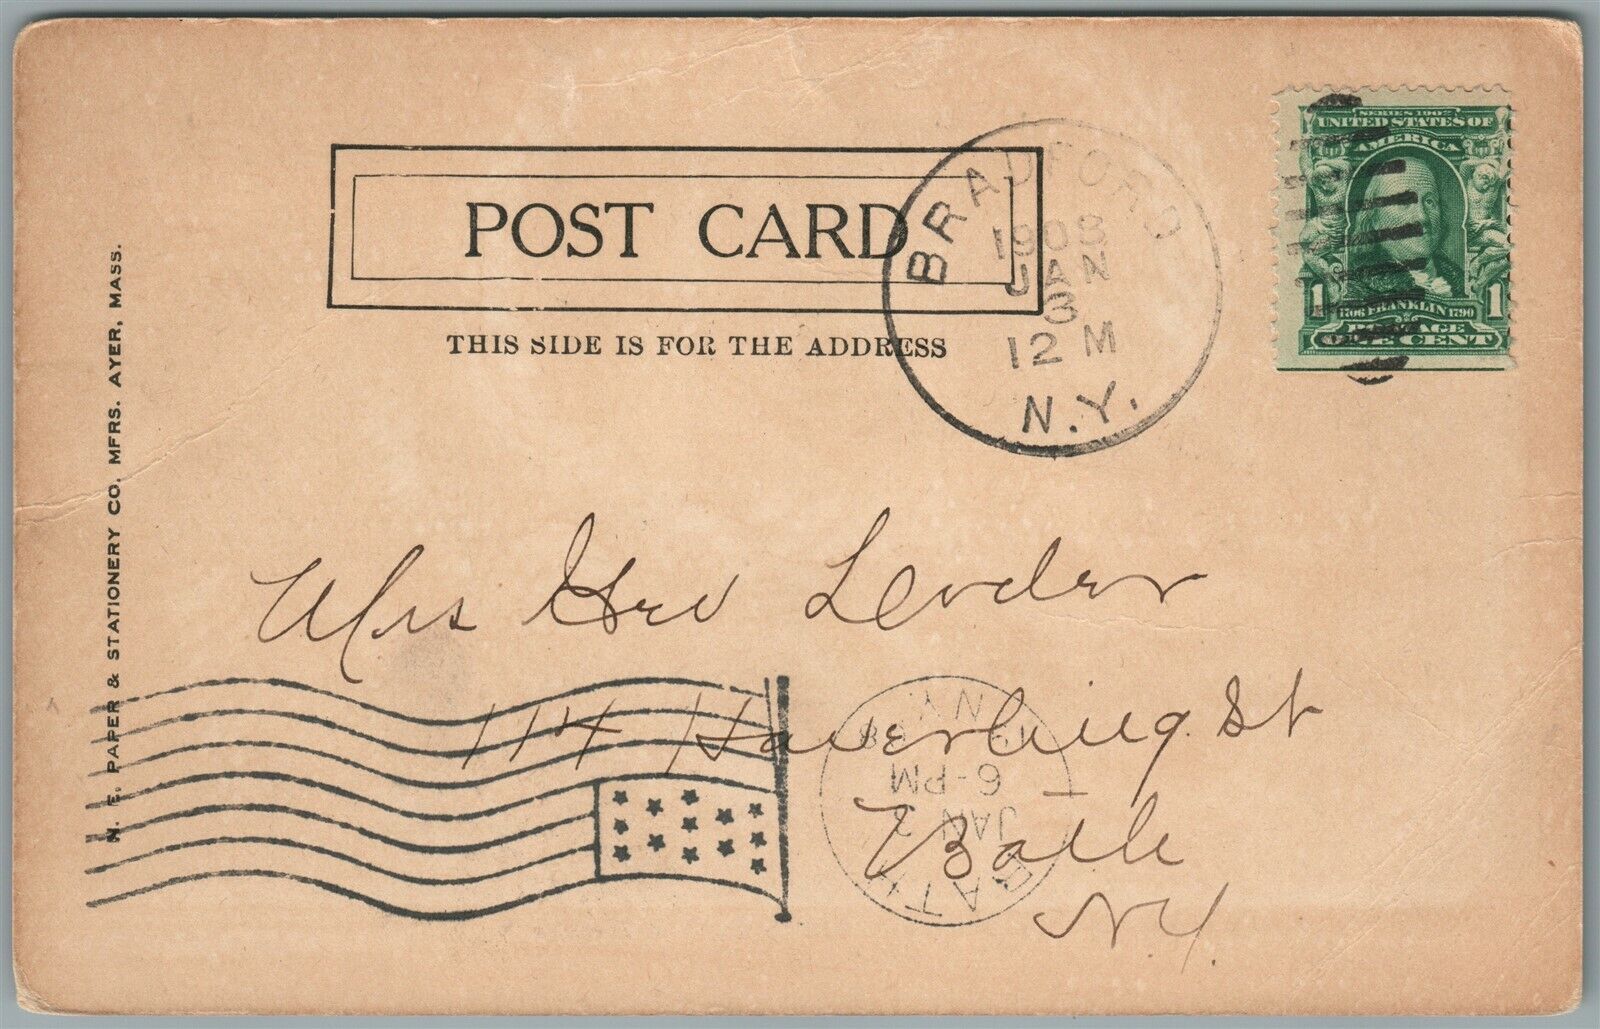 POST CARD
THIS SIDE IS FOR THE ADDRESS
BRADFORD
1908
JAN
3
12 M
N.Y.
SERIES 1902
UNITED STATES OF
AMERICA
1706 FRANKLIN 1790
POSTAGE
1 ONE CENT 1
N. E. PAPER & STATIONERY CO. MFRS. AYER, MASS.
Mrs Geo
114 Haverling St
Bath
N.Y.
BATH
JAN
6-PM
N.Y.